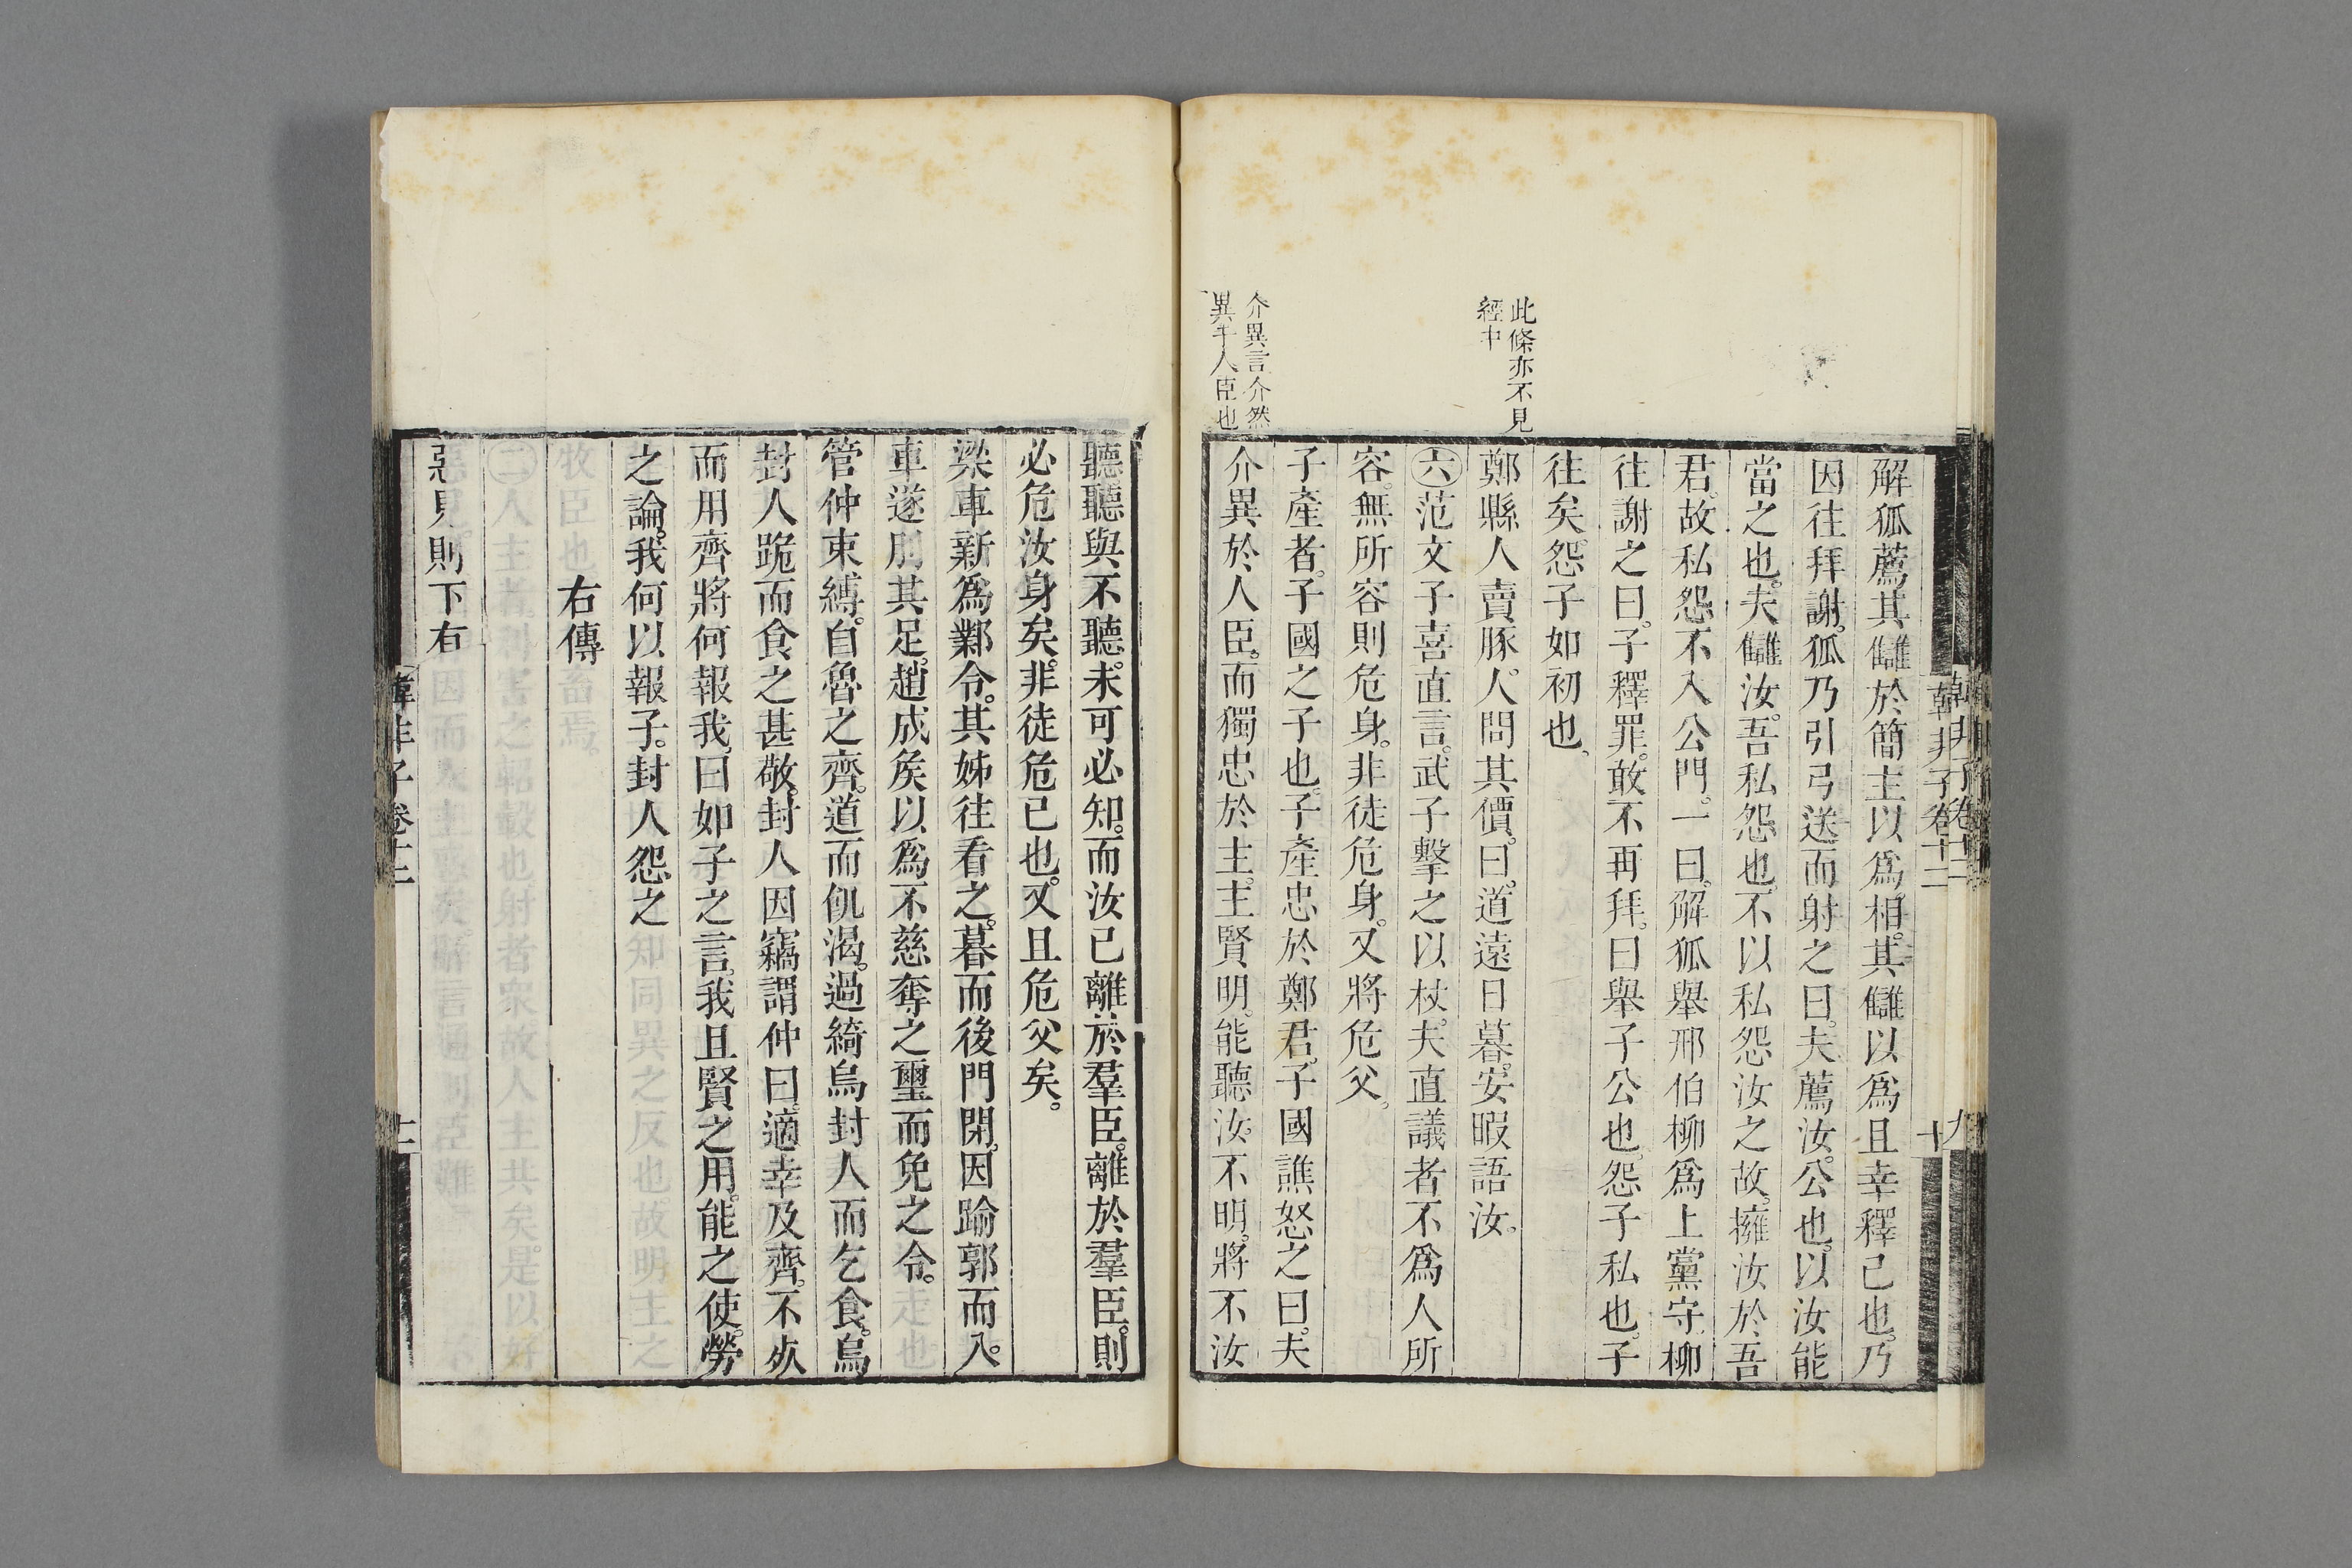 此條亦不見
經中
介異言介然
異乎人臣也
解狐薦其讎於簡主以爲相。其讎以爲且幸釋己也。乃
因往拜謝。狐乃引弓送而射之曰。夫薦汝。公也。以汝能
當之也。夫讎汝。吾私怨也。不以私怨汝之故。擁汝於吾
君。故私怨不入公門。一曰。解狐舉邢伯柳爲上黨守。柳
往謝之曰。子釋罪。敢不再拜。曰舉子公也。怨子私也。子
往矣。怨子如初也。
鄭縣人賣豚。人問其價。曰。道遠日暮。安暇語汝。
六范文子喜直言。武子擊之以杖。夫直議者不爲人所
容。無所容則危身。非徒危身。又將危父。
子產者。子國之子也。子產忠於鄭君。子國譙怒之曰。夫
介異於人臣。而獨忠於主。主賢明。能聽汝。不明。將不汝
韓非子卷十二
十
聽。聽與不聽。未可必知。而汝已離於羣臣。離於羣臣。則
必危汝身矣。非徒危已也。又且危父矣。
梁車新爲鄴令。其姊往看之。暮而後門閉。因踰郭而入。
車遂刖其足。趙成矦以爲不慈奪之璽而免之令。
管仲束縛。自魯之齊。道而飢渴。過綺烏封人而乞食。烏
封人跪而食之甚敬。封人因竊謂仲曰。適幸及齊。不死
而用齊將何報我。曰如子之言。我且賢之用。能之使。勞
之論。我何以報子。封人怨之
右傳
惡見則下有
韓非子卷十二